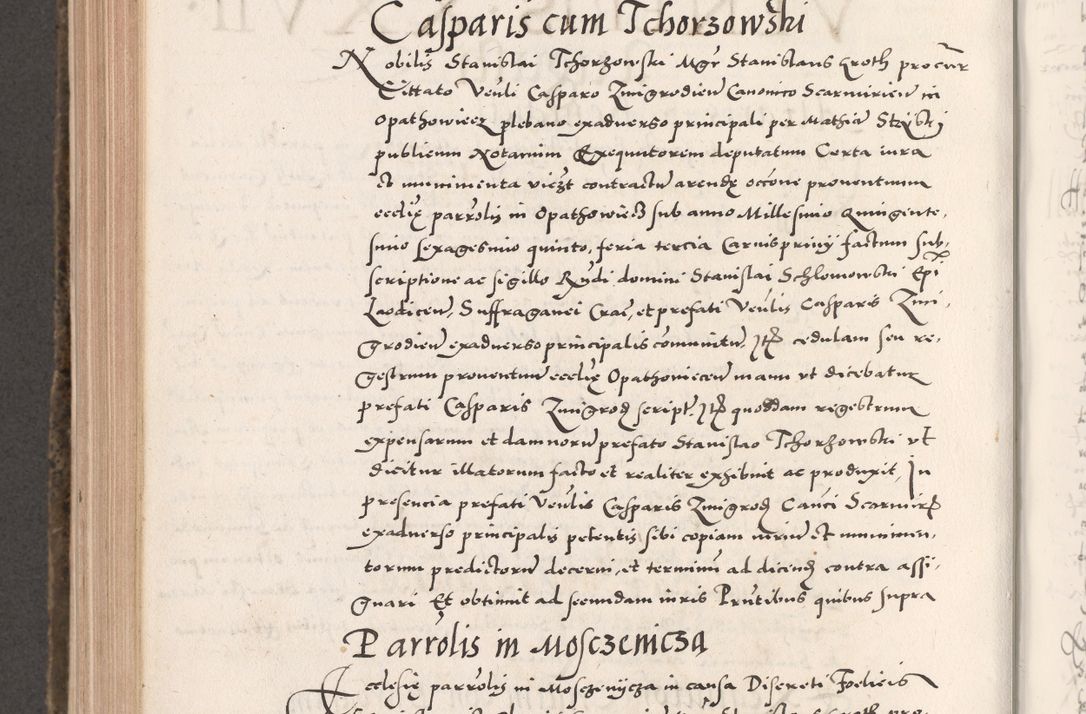 Casparis cum Tchorzowski
Nobilis Stanislai Tchorzowski Mgr Stanislaus Croth procur
Cittato Venli Casparo Zmigrodien Canonico Scarmirien in
Opathowiecz plebano exadverso principali per Mathia
publicum Notarium Exequutorem deputatum Certa iura
et munimenta vidzt contractu arendę occone proventuum
ecclię parrolis in Opathowiecz sub anno Millesimo Quingente,
simo sexagesimo quinto, feria tercia Carnisprivii factum sub,
scriptione ac sigillo Rndi domini Stanislai Schlomowski Epi
Laodicen, Suffraganei Crac, et prefati Venlis Casparis Zmi,
grodien exadverso principalis comunitu, Ite cedulam seu re,
gestrum proventuum ecclię Opathoviecen manu vt dicebatur
prefati Casparis Zmigrod script, Ite quoddam regestrum
expensarum et damnoru prefato Stanislao Tchorzowski vt
dicitur illatorum facto et realiter exhibuit ac produxit, In
presencia prefati Venlis Casparis Zmigrod Canci Scarmir
exadverso principalis petentis sibi copiam iuriu et munimen,
torum predictoru decerni, et terminu ad dicend contra assi,
gnari Et obtinuit ad secundam iuris Prntibus quibus supra
Parrolis in Mosczenicza
Ecclesię parrolis in Mosczenycza in causa Discreti Foelicis